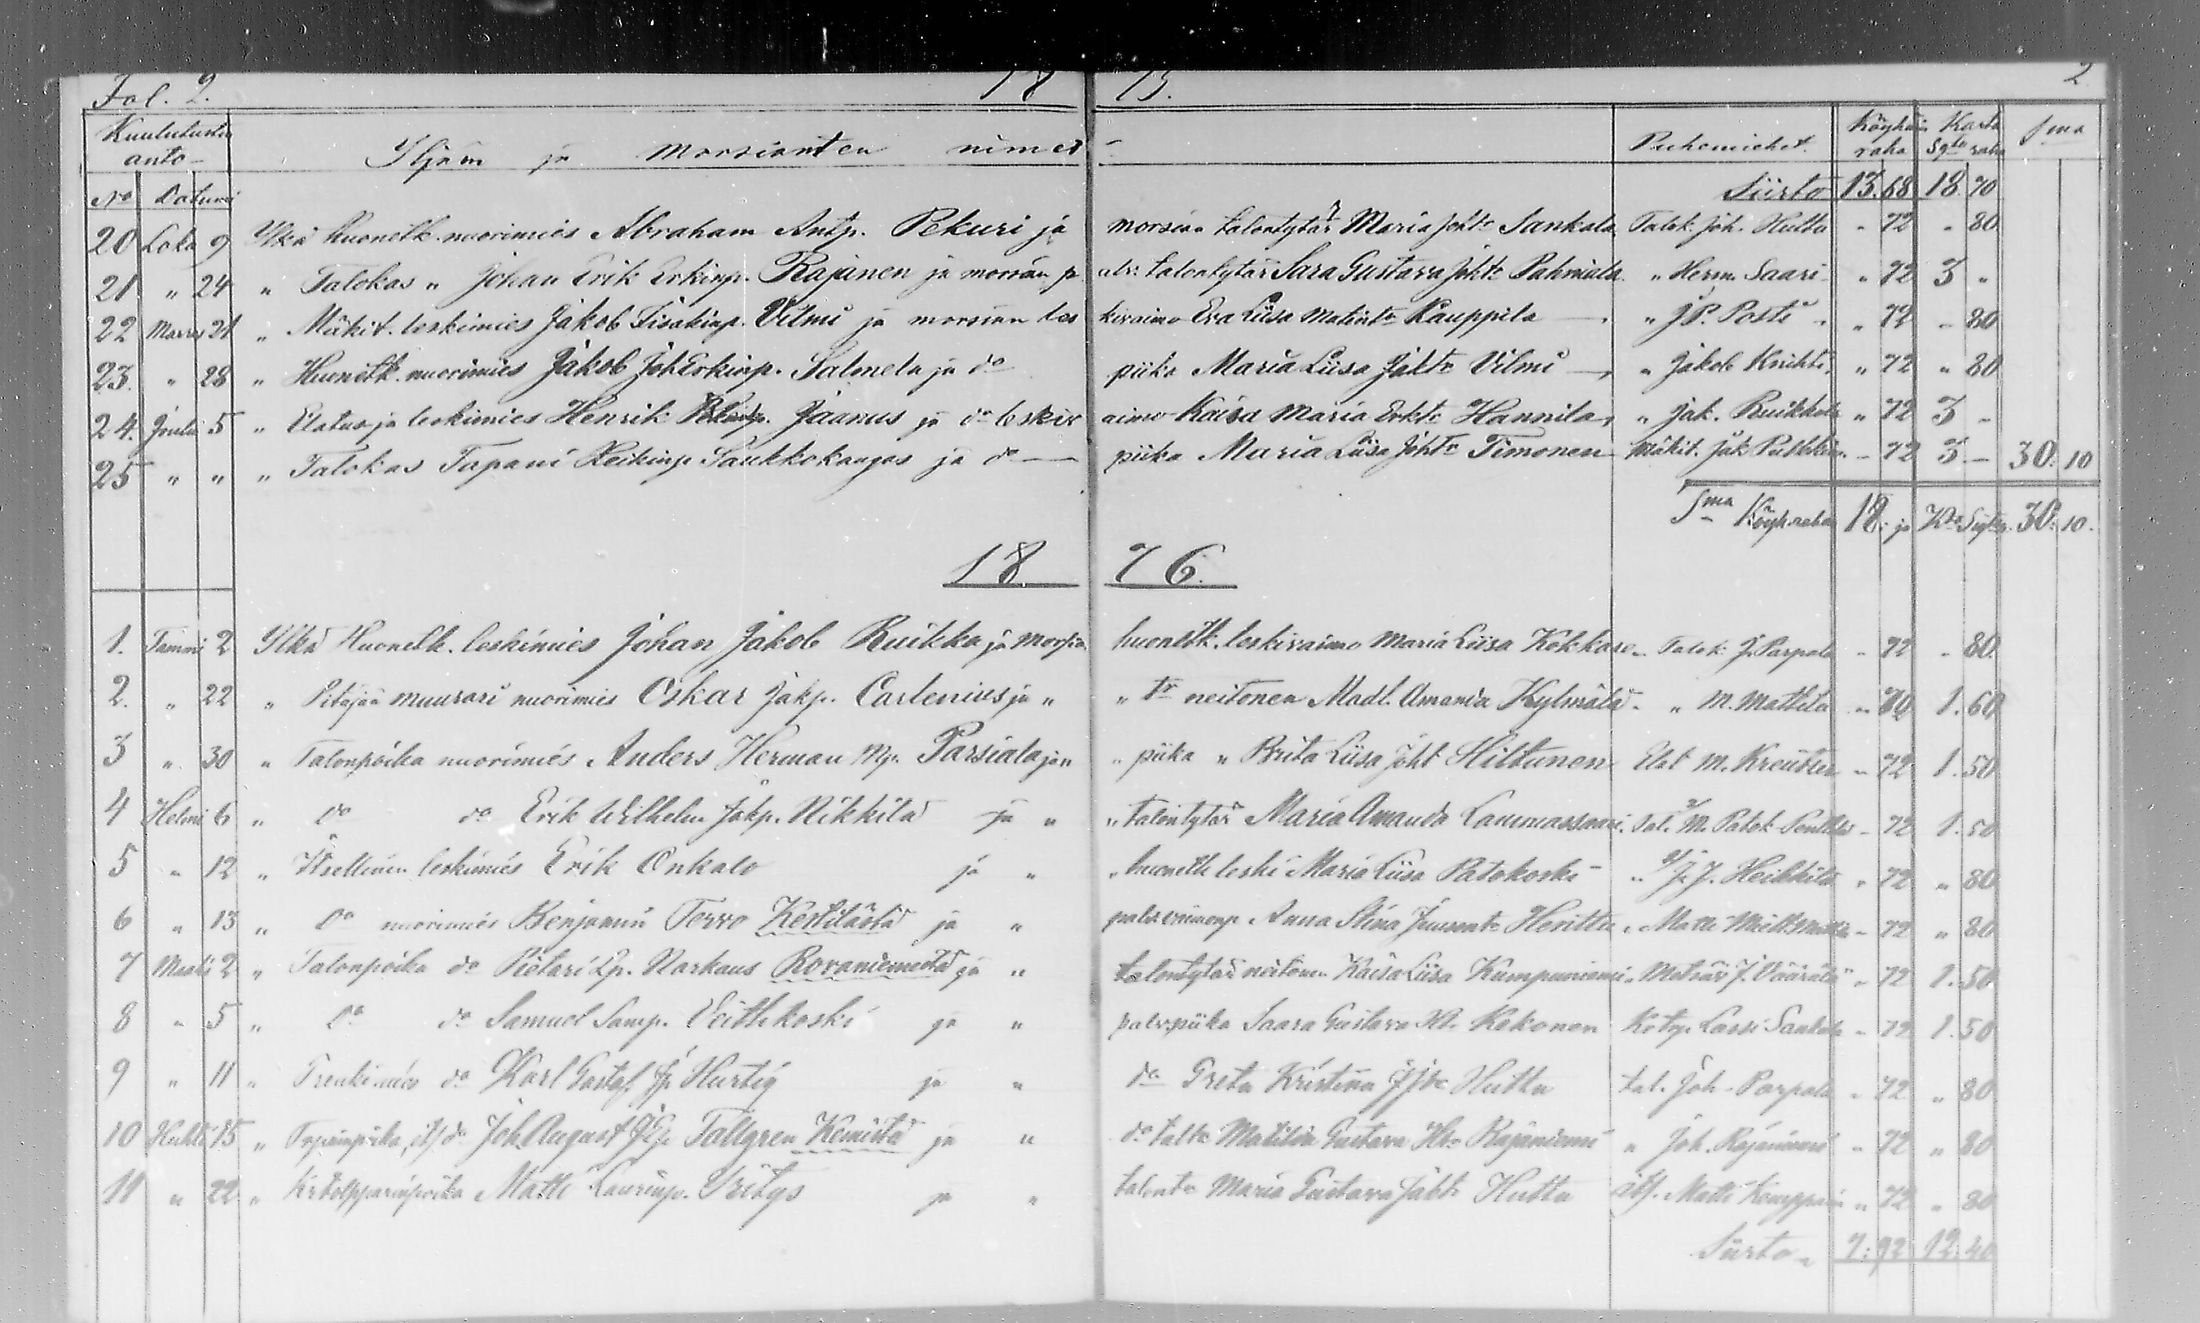 Fol. 2. 18 75. 2
Kuulutusten anto- Yljän ja morsianten nimet Puhemiehet. Köyhäin raha Kasta Sgto raha Sma
No Datumi Siirto 13.68 18 70
20 Loka 9 Ylkä huonelk. nuorimies Abraham Antp. Pekuri ja morsian talontytär Maria Joht. Sankala Talok. Joh. Hutta " 72 " 80
21 " 24 " Talokas " Johan Erik Erkinp. Rajanen ja morsian talontytär Sara Gustava Joht. " Herm. Saari " 72 3 "
22 Marras 21 " Mäkit. leskimies Jakob Iisakinp. Vilmi ja morsian les kivaimo Eva Liisa Matintr Kauppila " J.P. Posti " 72 - 80
23. " 28 " Huonelk. nuorimies Jakob Joh Erkinp. Salonela ja do piika Maria Liisa Jaktr Vilmi " Jakob Krihti " 72 " 80
24. Joulu 5 " Elatus ja leskimies Henrik Jaanus ja do leskiv aimo Kaisa Maria Erktr Hannila " Jak. Ruikkala " 72 3 -
25 " " " Talokas Tapani Heikinp. Saukkokangas ja do piika Maria Liisa Johtr Timonen Mäkit. Jak - 72 3. - 30. 10
Sma Köyh.raha 18. ja 30: 10.
18 76.
1. Tammi 2 Ylkä Huonelk. leskimies Johan Jakob Ruikka ja morsian huonelk. leskivaimo Maria Liisa Kokkare Talok. J. Parpala - 72 - 80.
2. " 22 " Pitäjän muurari nuorimies Oskar Jakp. Carlenius ja " " tr neitonen Madl. Amanda Kylmälä - " M. Mattila 1.60
3 " 30 " Talonpoika nuorimies Anders Herman Mp. Parsiala ja " " piika " Brita Liisa Joht Hiltunen Elat M. Kreutser - 72 1.50
4 Helmi 6 " do do Erik Wilhelm Jakp. Nikkilä ja " " talontytär Maria Amanda Lammassaari. Tal. M. - 72 1.50
5 " 12 " Itsellinen leskimies Erik Onkalo ja " " huonelk leski Maria Liisa Patokoski - " J. J. Heikkilä " 72 " 80
6 " 13 " do nuorimies Benjamin Torvo ja " Anna Stina Heritta " Matti - 72 " 80
7 Maalis 2 " Talonpoika do Pietari Lp. Narkaus Rovaniemeltä ja " talontytär neitonen Kaisa Liisa Kumpuniemi J. Väärälä " 72 1.50
8 " 5 " do do Samuel Samp. ja " palv.piika Saara Gustava Kokonen Lassi Saukala - 72 1.50
9 " 11 " Trenkimies do Karl Gustaf Jp Hurtig ja " do Greta Kristina Hutta tal. Joh. Parpala - 72 " 80
10 Huhti 15 " do Joh. August Tallgren Kemistä ja " do Matilda Gustava Rajaniemi " Joh. Rajaniemi - 72 " 80
11 " 22 " Matti Laurinp. Yritys ja " talontr Maria Gustava Jaktr Hutta itl. Matti " 72 " 80
Siirto - 7:92 12.40